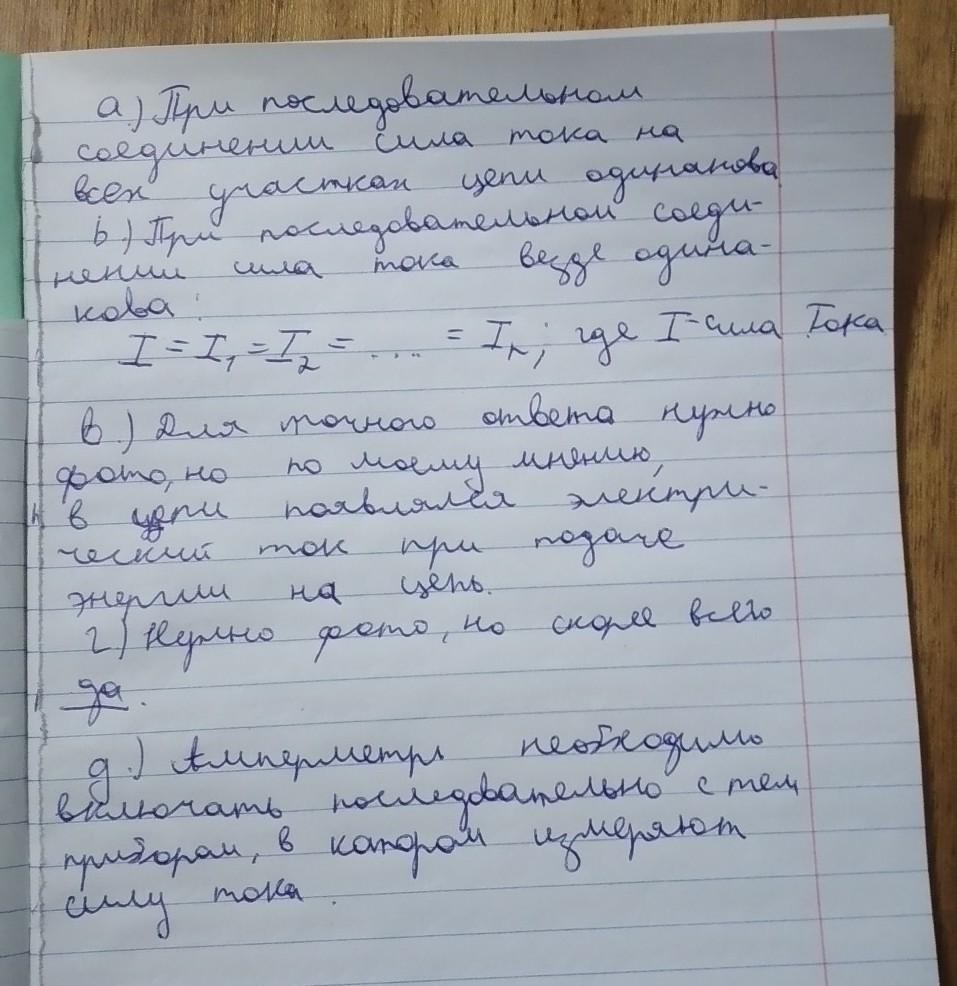 а.) При последовательном
соединении сила тока на
всех участках цепи одинакова
b.) При последовательном соеди-
нении сила тока везде одина-
кова:
I = I₁ = I₂ = .... = Iₙ; где I-сила Тока
в.) Для точного ответа нужно
фото, но по моему мнению,
в цепи появлялся электри-
ческий ток при подаче
энергии на цепь.
г) Нужно фото, но скорее всего
да.
д.) Амперметр необходимо
включать последовательно с тем
прибором, в котором измеряют
силу тока.